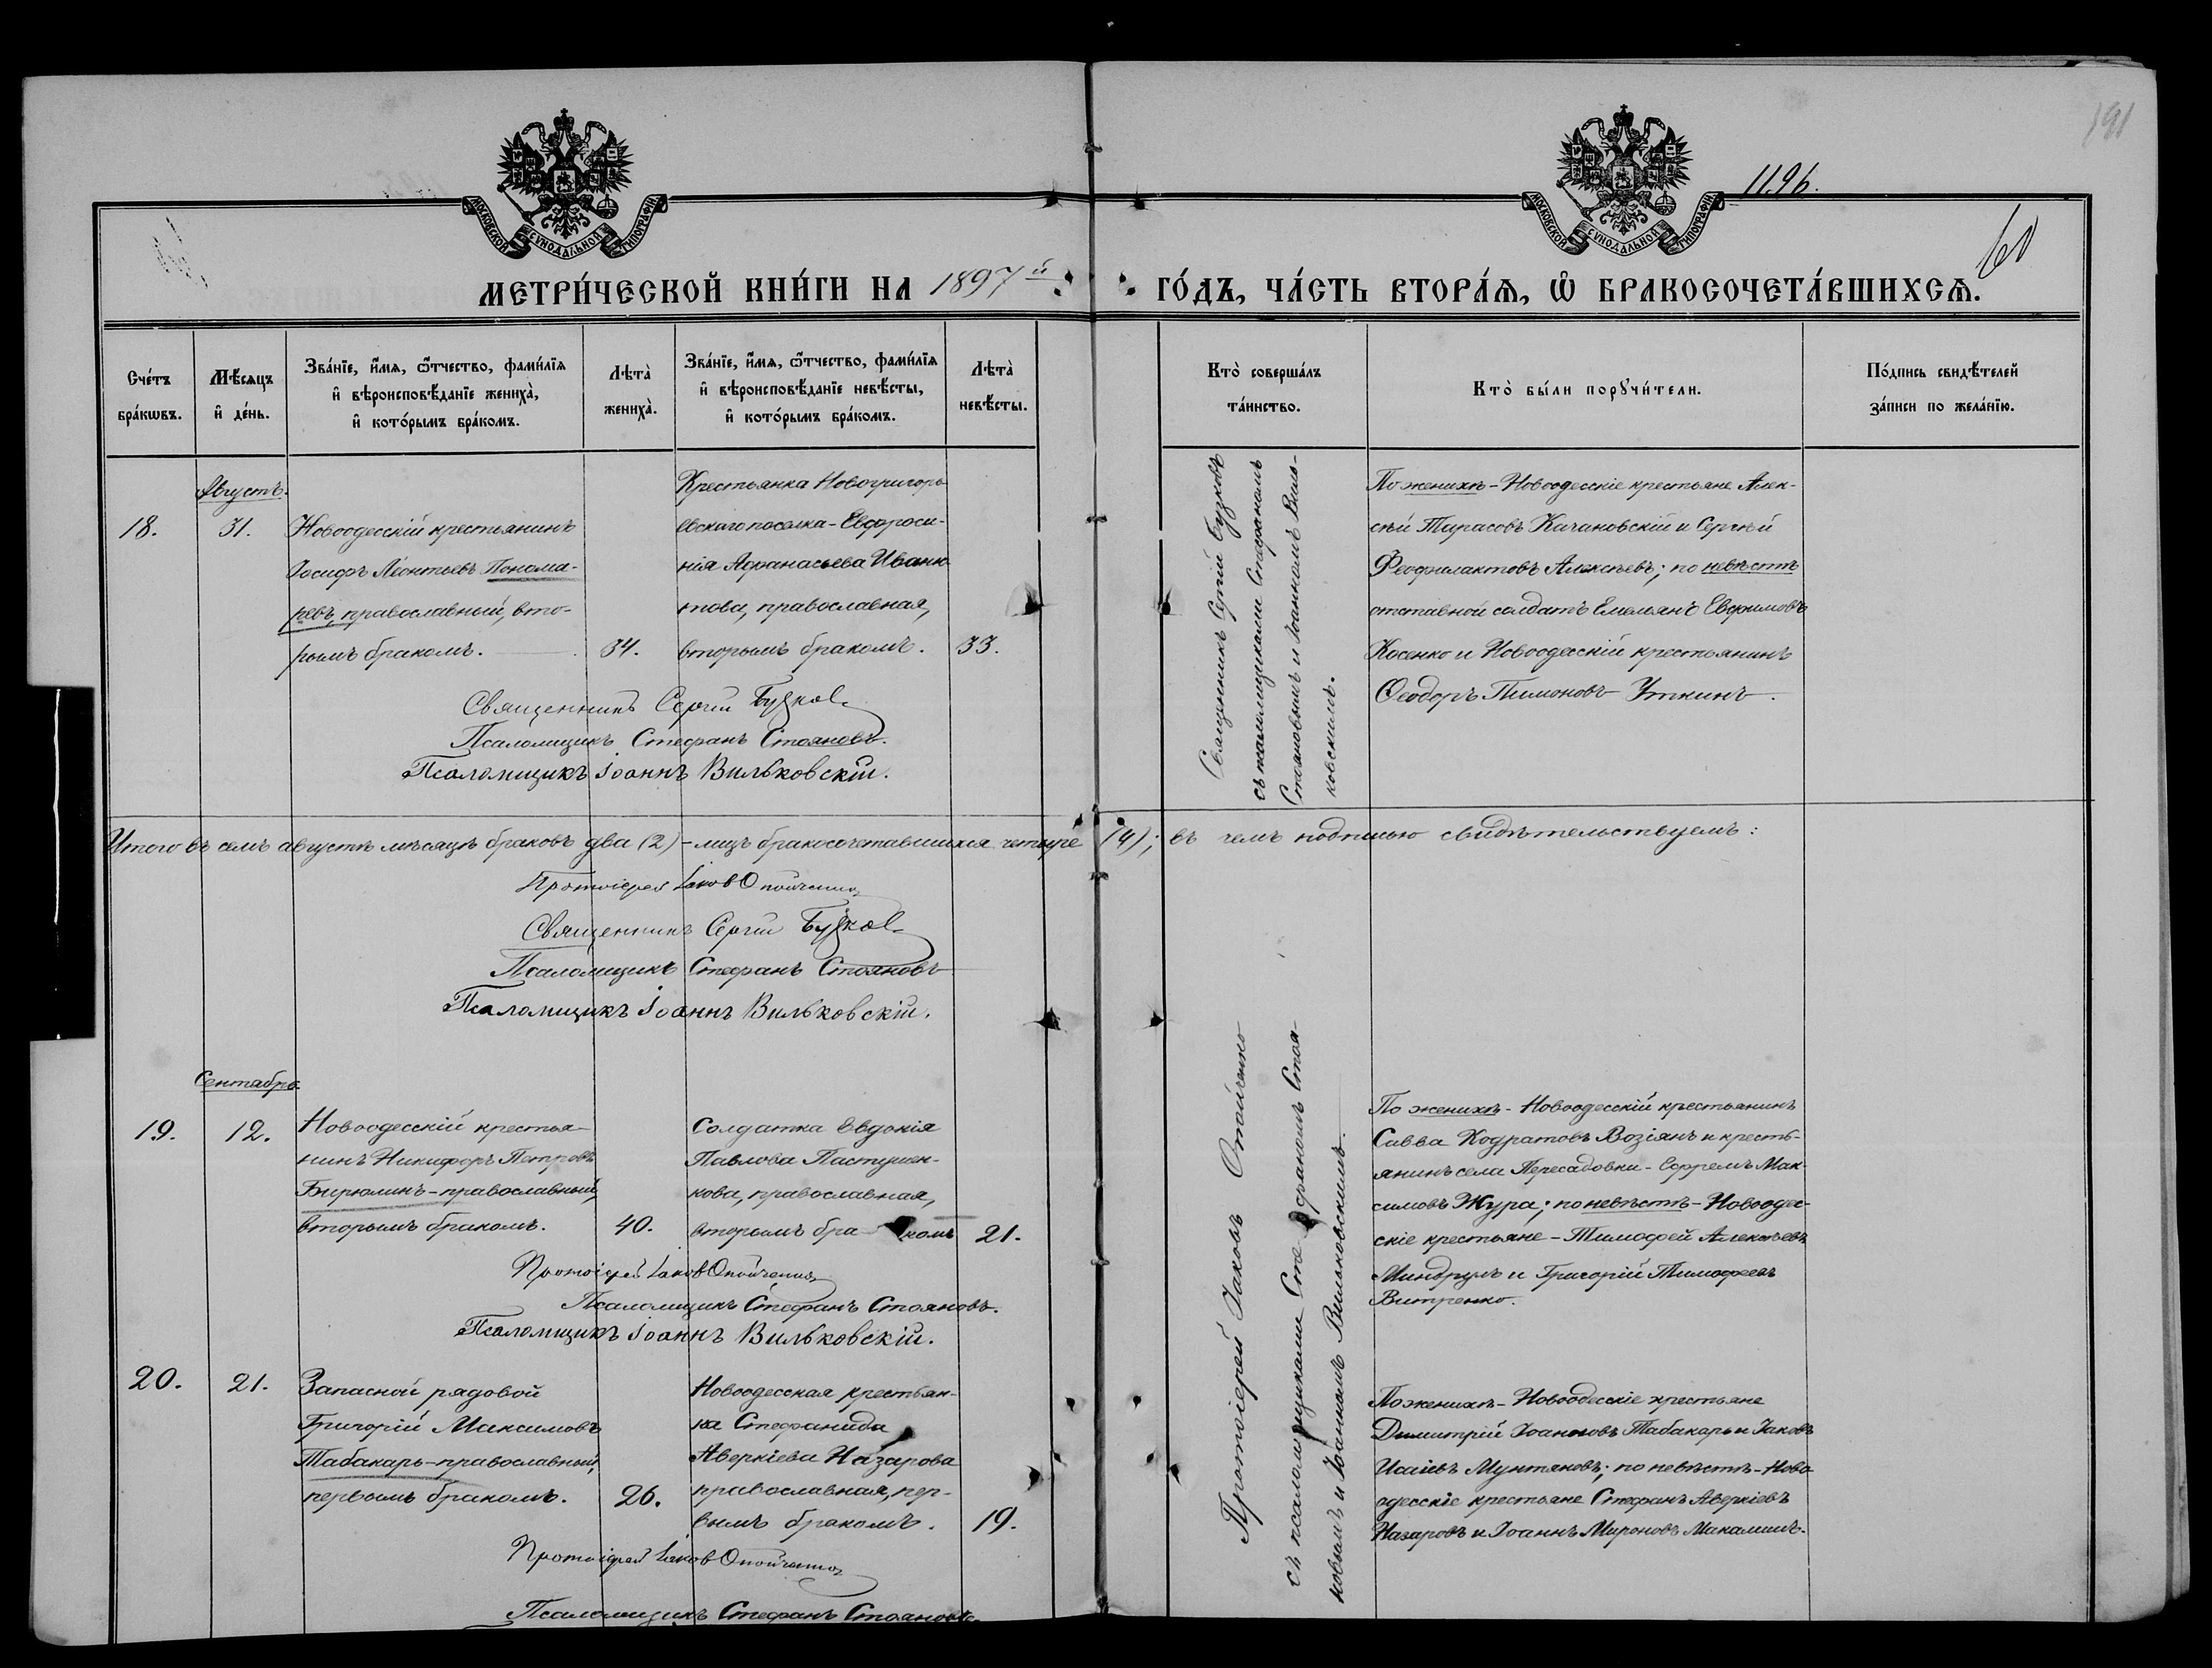 191
1196.
60
МОСКОВСКОЙ СѴНОДАЛЬНОЙ ТИПОГРАФІИ
МОСКОВСКОЙ СѴНОДАЛЬНОЙ ТИПОГРАФІИ
МЕТРИ́ЧЕСКОЙ КНИ́ГИ НА 1897й ГО́ДЪ, ЧА́СТЬ ВТОРА́Ѧ, Ѡ҆ БРАКОСОЧЕТА́ВШИХСѦ.
Сче́тъ
бра́кωвъ.
Мѣ́сяцъ
и҆ де́нь.
Зва́нїе, и҆́мя, ѻ҆́тчество, фами́лїя
и҆ вѣроисповѣ́данїе жениха̀,
и҆ кото́рымъ бра́комъ.
Лѣта̀
жениха̀.
Зва́нїе, и҆́мя, ѻ҆́тчество, фами́лїя
и҆ вѣроисповѣ́данїе невѣ́сты,
и҆ кото́рымъ бра́комъ.
Лѣта̀
невѣ́сты.
Кто̀ соверша́лъ
та́инство.
Кто̀ бы́ли порꙋчи́тели.
По́дпись свидѣ́телей
за́писи по жела́нїю.
Августъ.
18.
31.
Новоодесскій крестьянинъ
Іосифъ Леонтьевъ Понома-
ревъ, православный, вто-
рымъ бракомъ.
34.
Крестьянка Новогригорь-
евскаго поселка - Евфроси-
нія Афанасьева Иваню-
това, православная,
вторымъ бракомъ.
33.
Священникъ Сергій Бузковъ
съ псаломщиками Стефаномъ
Стояновымъ и Іоанномъ Виль-
ковскимъ.
По женихѣ - Новоодесскіе крестьяне Алек-
сѣй Тарасовъ Качановскій и Сергѣй
Феофилактовъ Алексѣевъ; по невѣстѣ
отставной солдатъ Емельянъ Евфимовъ
Косенко и Новоодесскій крестьянинъ
Ѳеодоръ Тимоновъ Уткинъ.
Священникъ Сергій Бузков
Псаломщикъ Стефанъ Стояновъ.
Псаломщикъ Іоаннъ Вильковскій.
Итого въ семъ августѣ мѣсяцѣ браковъ два (2) - лицъ бракосочетавшихся четыре (4); въ чемъ подписью свидѣтельствуемъ:
Протоіерей Іаков
Священникъ Сергій Бузков
Псаломщикъ Стефанъ Стояновъ
Псаломщикъ Іоаннъ Вильковскій.
Сентябрь.
19.
12.
Новоодесскій крестья-
нинъ Никифоръ Петровъ
Бирюлинъ - православный,
вторымъ бракомъ.
40.
Солдатка Евдокія
Павлова Пастушен-
кова, православная,
вторымъ бра- комъ
21.
Протоіерей Іаковъ
съ псаломщиками Стефаномъ Стоя-
новымъ и Іоанномъ Вильковскимъ.
По женихѣ - Новоодесскій крестьянинъ
Савва Кодратовъ Возіянъ и кресть-
янинъ села Пересадовки - Ефремъ Мак-
симовъ Жура; по невѣстѣ - Новоодес-
скіе крестьяне - Тимофей Алексѣевъ
Миндрулъ и Григорій Тимофеевъ
Витренко.
Протоіерей Іаков
Псаломщикъ Стефанъ Стояновъ.
Псаломщикъ Іоаннъ Вильковскій.
20.
21.
Запасной рядовой
Григорій Максимовъ
Табакарь - православный,
первымъ бракомъ.
26.
Новоодесская крестьян-
ка Стефанида
Аверкіева Назарова
православная, пер-
вымъ бракомъ.
19.
По женихѣ - Новоодесскіе крестьяне
Димитрій Іоанновъ Табакарь и Іаковъ
Исаіевъ Мунтяновъ; по невѣстѣ - Ново-
одесскіе крестьяне Стефанъ Аверкіевъ
Назаровъ и Іоаннъ Мироновъ Макалишъ.
Протоіерей Іаков
Псаломщикъ Стефанъ Стояновъ.